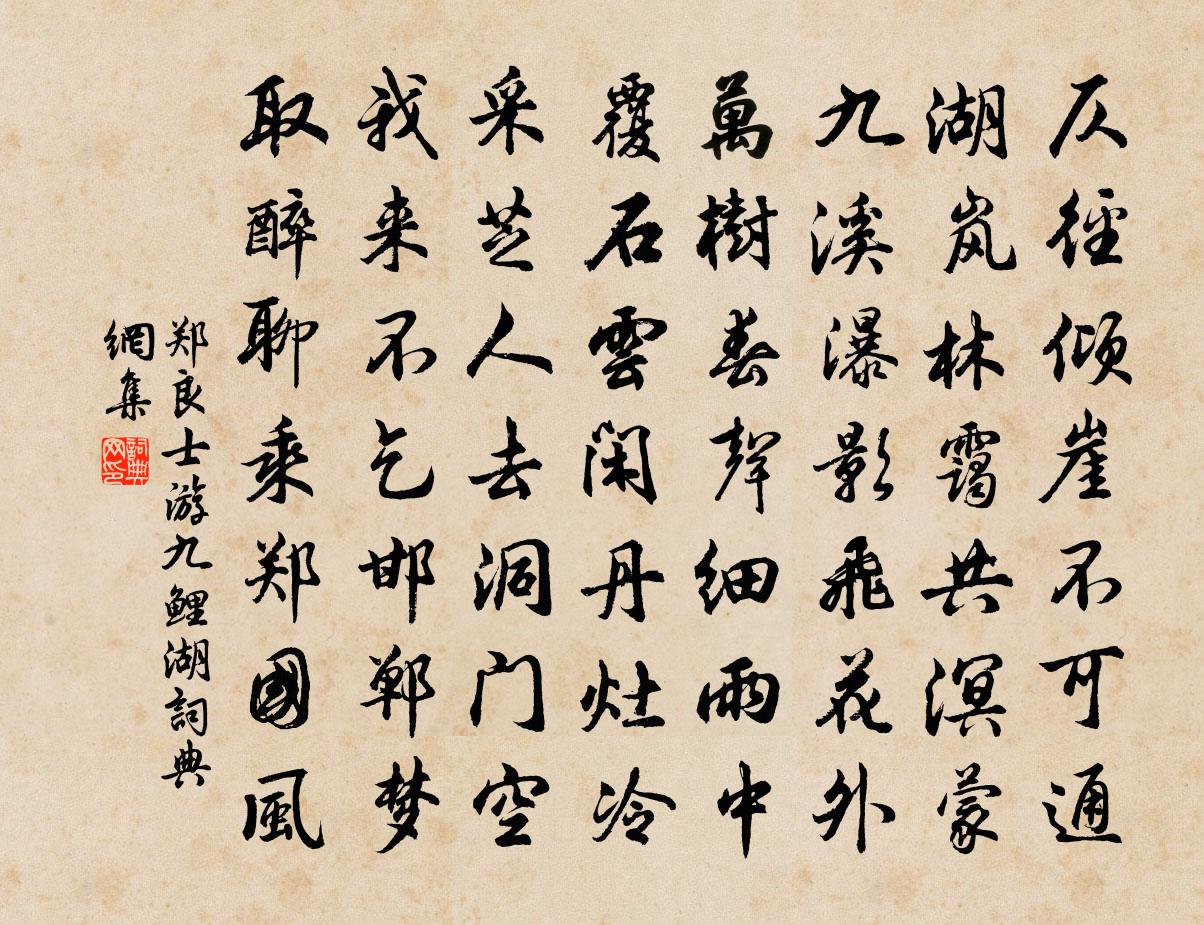 仄徑倾崖不可通
湖岚林靄共溟蒙
九溪瀑影飛花外
萬樹春聲细雨中
覆石雲闲丹灶冷
采芝人去洞门空
我来不乞邯郸梦
取醉聊乘郑國風
郑良士游九鲤湖詞典
網集
詞典
网印